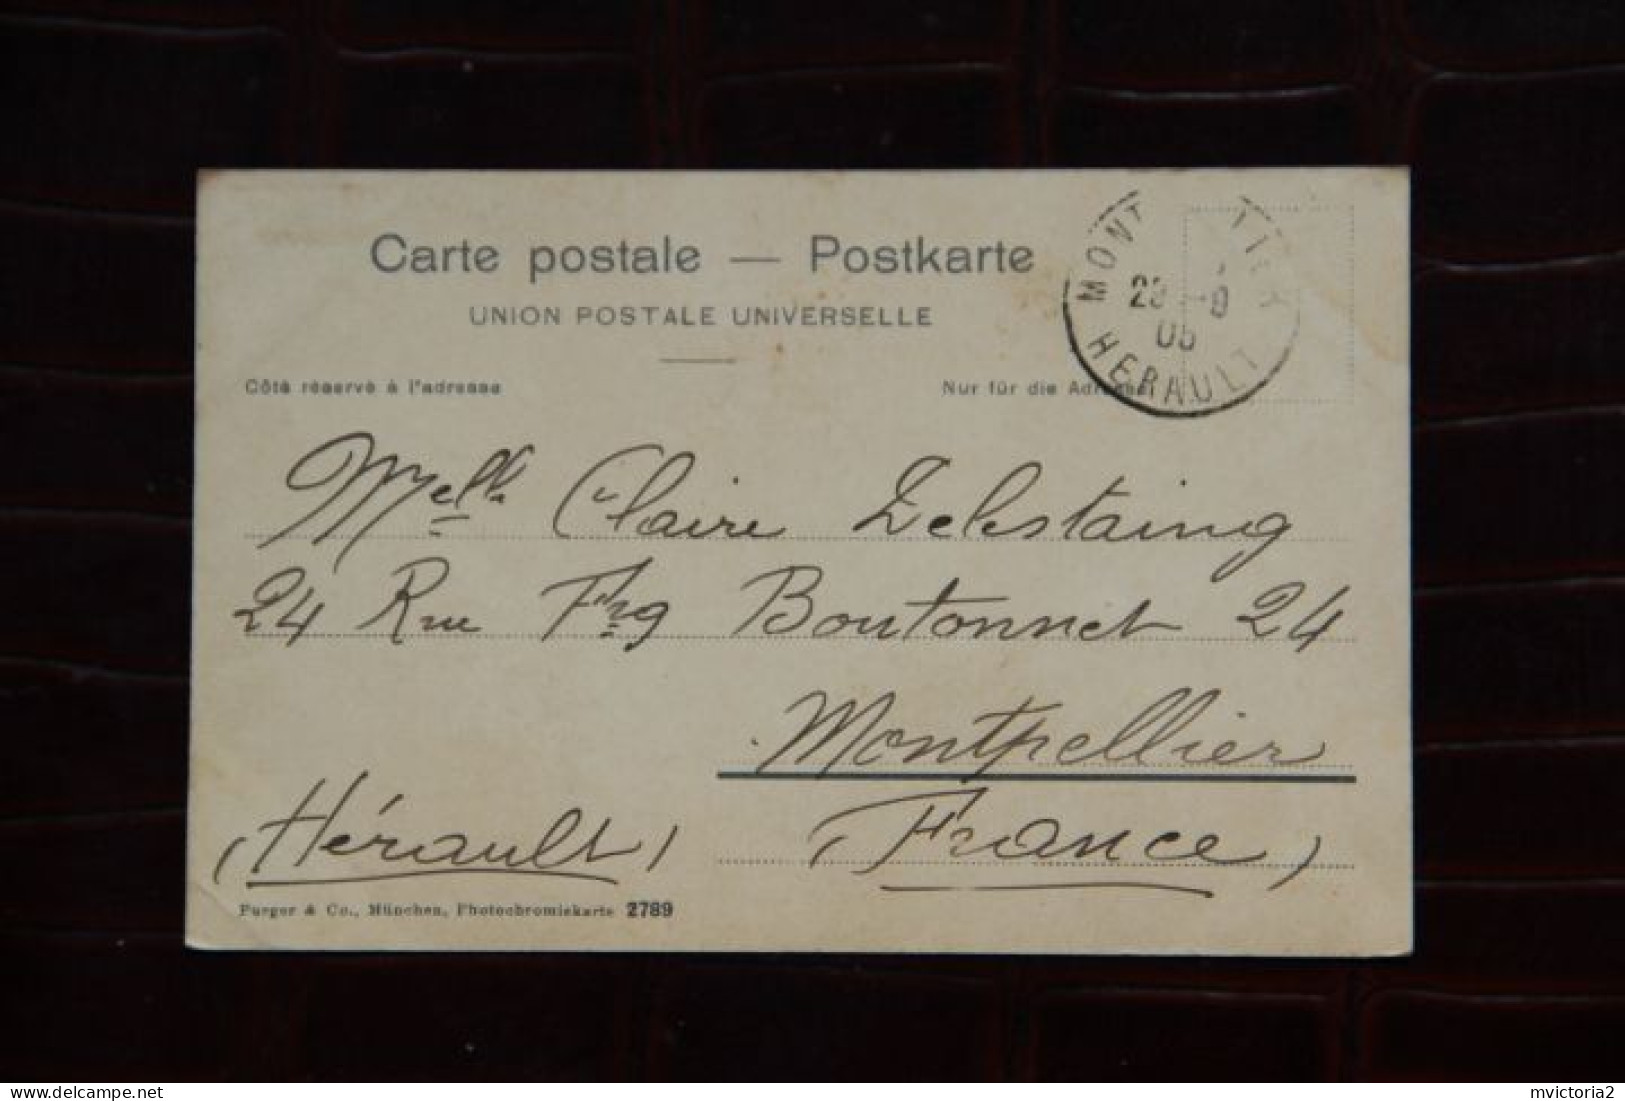 Carte postale — Postkarte
UNION POSTALE UNIVERSELLE
MONT TIER
HERAULT
05
Côté réservé à l'adresse
Nur für die Adresse
Melle Claire Delestaing
24 Rue Fbg Boutonnet 24
Montpellier
(Hérault)
(France)
Purger & Co., München, Photochromiekarte 2789
mvictoria2